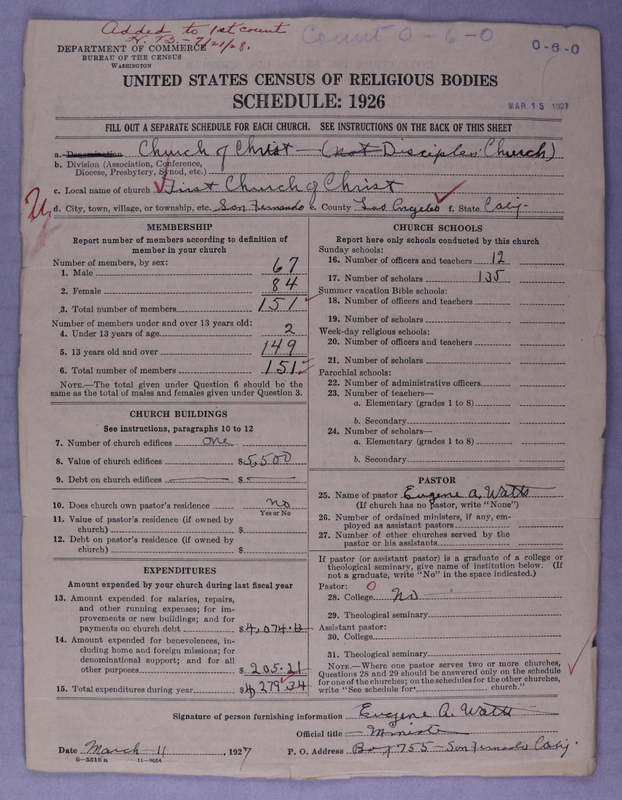 Added to 1st count
H. B. - 7/21/28.
Count 0-6-0
0-6-0
DEPARTMENT OF COMMERCE
BUREAU OF THE CENSUS
WASHINGTON
UNITED STATES CENSUS OF RELIGIOUS BODIES
SCHEDULE: 1926
MAR 15 1927
FILL OUT A SEPARATE SCHEDULE FOR EACH CHURCH. SEE INSTRUCTIONS ON THE BACK OF THIS SHEET
a. Denomination Church of Christ - (not Disciples' Church)
b. Division (Association, Conference,
Diocese, Presbytery, Synod, etc.)
c. Local name of church First Church of Christ
d. City, town, village, or township, etc. San Fernando e. County Los Angeles f. State Calif.
MEMBERSHIP
Report number of members according to definition of
member in your church
Number of members, by sex:
1. Male 67
2. Female 84
3. Total number of members 151
Number of members under and over 13 years old:
4. Under 13 years of age 2
5. 13 years old and over 149
6. Total number of members 151
NOTE.—The total given under Question 6 should be the
same as the total of males and females given under Question 3.
CHURCH BUILDINGS
See instructions, paragraphs 10 to 12
7. Number of church edifices one
8. Value of church edifices $5,500
9. Debt on church edifices $
10. Does church own pastor's residence no
Yes or No
11. Value of pastor's residence (if owned by
church) $
12. Debt on pastor's residence (if owned by
church) $
EXPENDITURES
Amount expended by your church during last fiscal year
13. Amount expended for salaries, repairs,
and other running expenses; for im-
provements or new buildings; and for
payments on church debt $4,074.13
14. Amount expended for benevolences, in-
cluding home and foreign missions; for
denominational support; and for all
other purposes $ 205.21
15. Total expenditures during year $4 279.34
CHURCH SCHOOLS
Report here only schools conducted by this church
Sunday schools:
16. Number of officers and teachers 12
17. Number of scholars 135
Summer vacation Bible schools:
18. Number of officers and teachers
19. Number of scholars
Week-day religious schools:
20. Number of officers and teachers
21. Number of scholars
Parochial schools:
22. Number of administrative officers
23. Number of teachers—
a. Elementary (grades 1 to 8)
b. Secondary
24. Number of scholars—
a. Elementary (grades 1 to 8)
b. Secondary
PASTOR
25. Name of pastor Eugene A. Watts
(If church has no pastor, write "None")
26. Number of ordained ministers, if any, em-
ployed as assistant pastors
27. Number of other churches served by the
pastor or his assistants
If pastor (or assistant pastor) is a graduate of a college or
theological seminary, give name of institution below. (If
not a graduate, write "No" in the space indicated.)
Pastor: 0
28. College no
29. Theological seminary
Assistant pastor:
30. College
31. Theological seminary
NOTE.—Where one pastor serves two or more churches,
Questions 28 and 29 should be answered only on the schedule
for one of the churches; on the schedules for the other churches,
write "See schedule for church."
Signature of person furnishing information Eugene A. Watts
Official title Minister
Date March 11, 1927 P. O. Address Box 755 - San Fernando Calif.